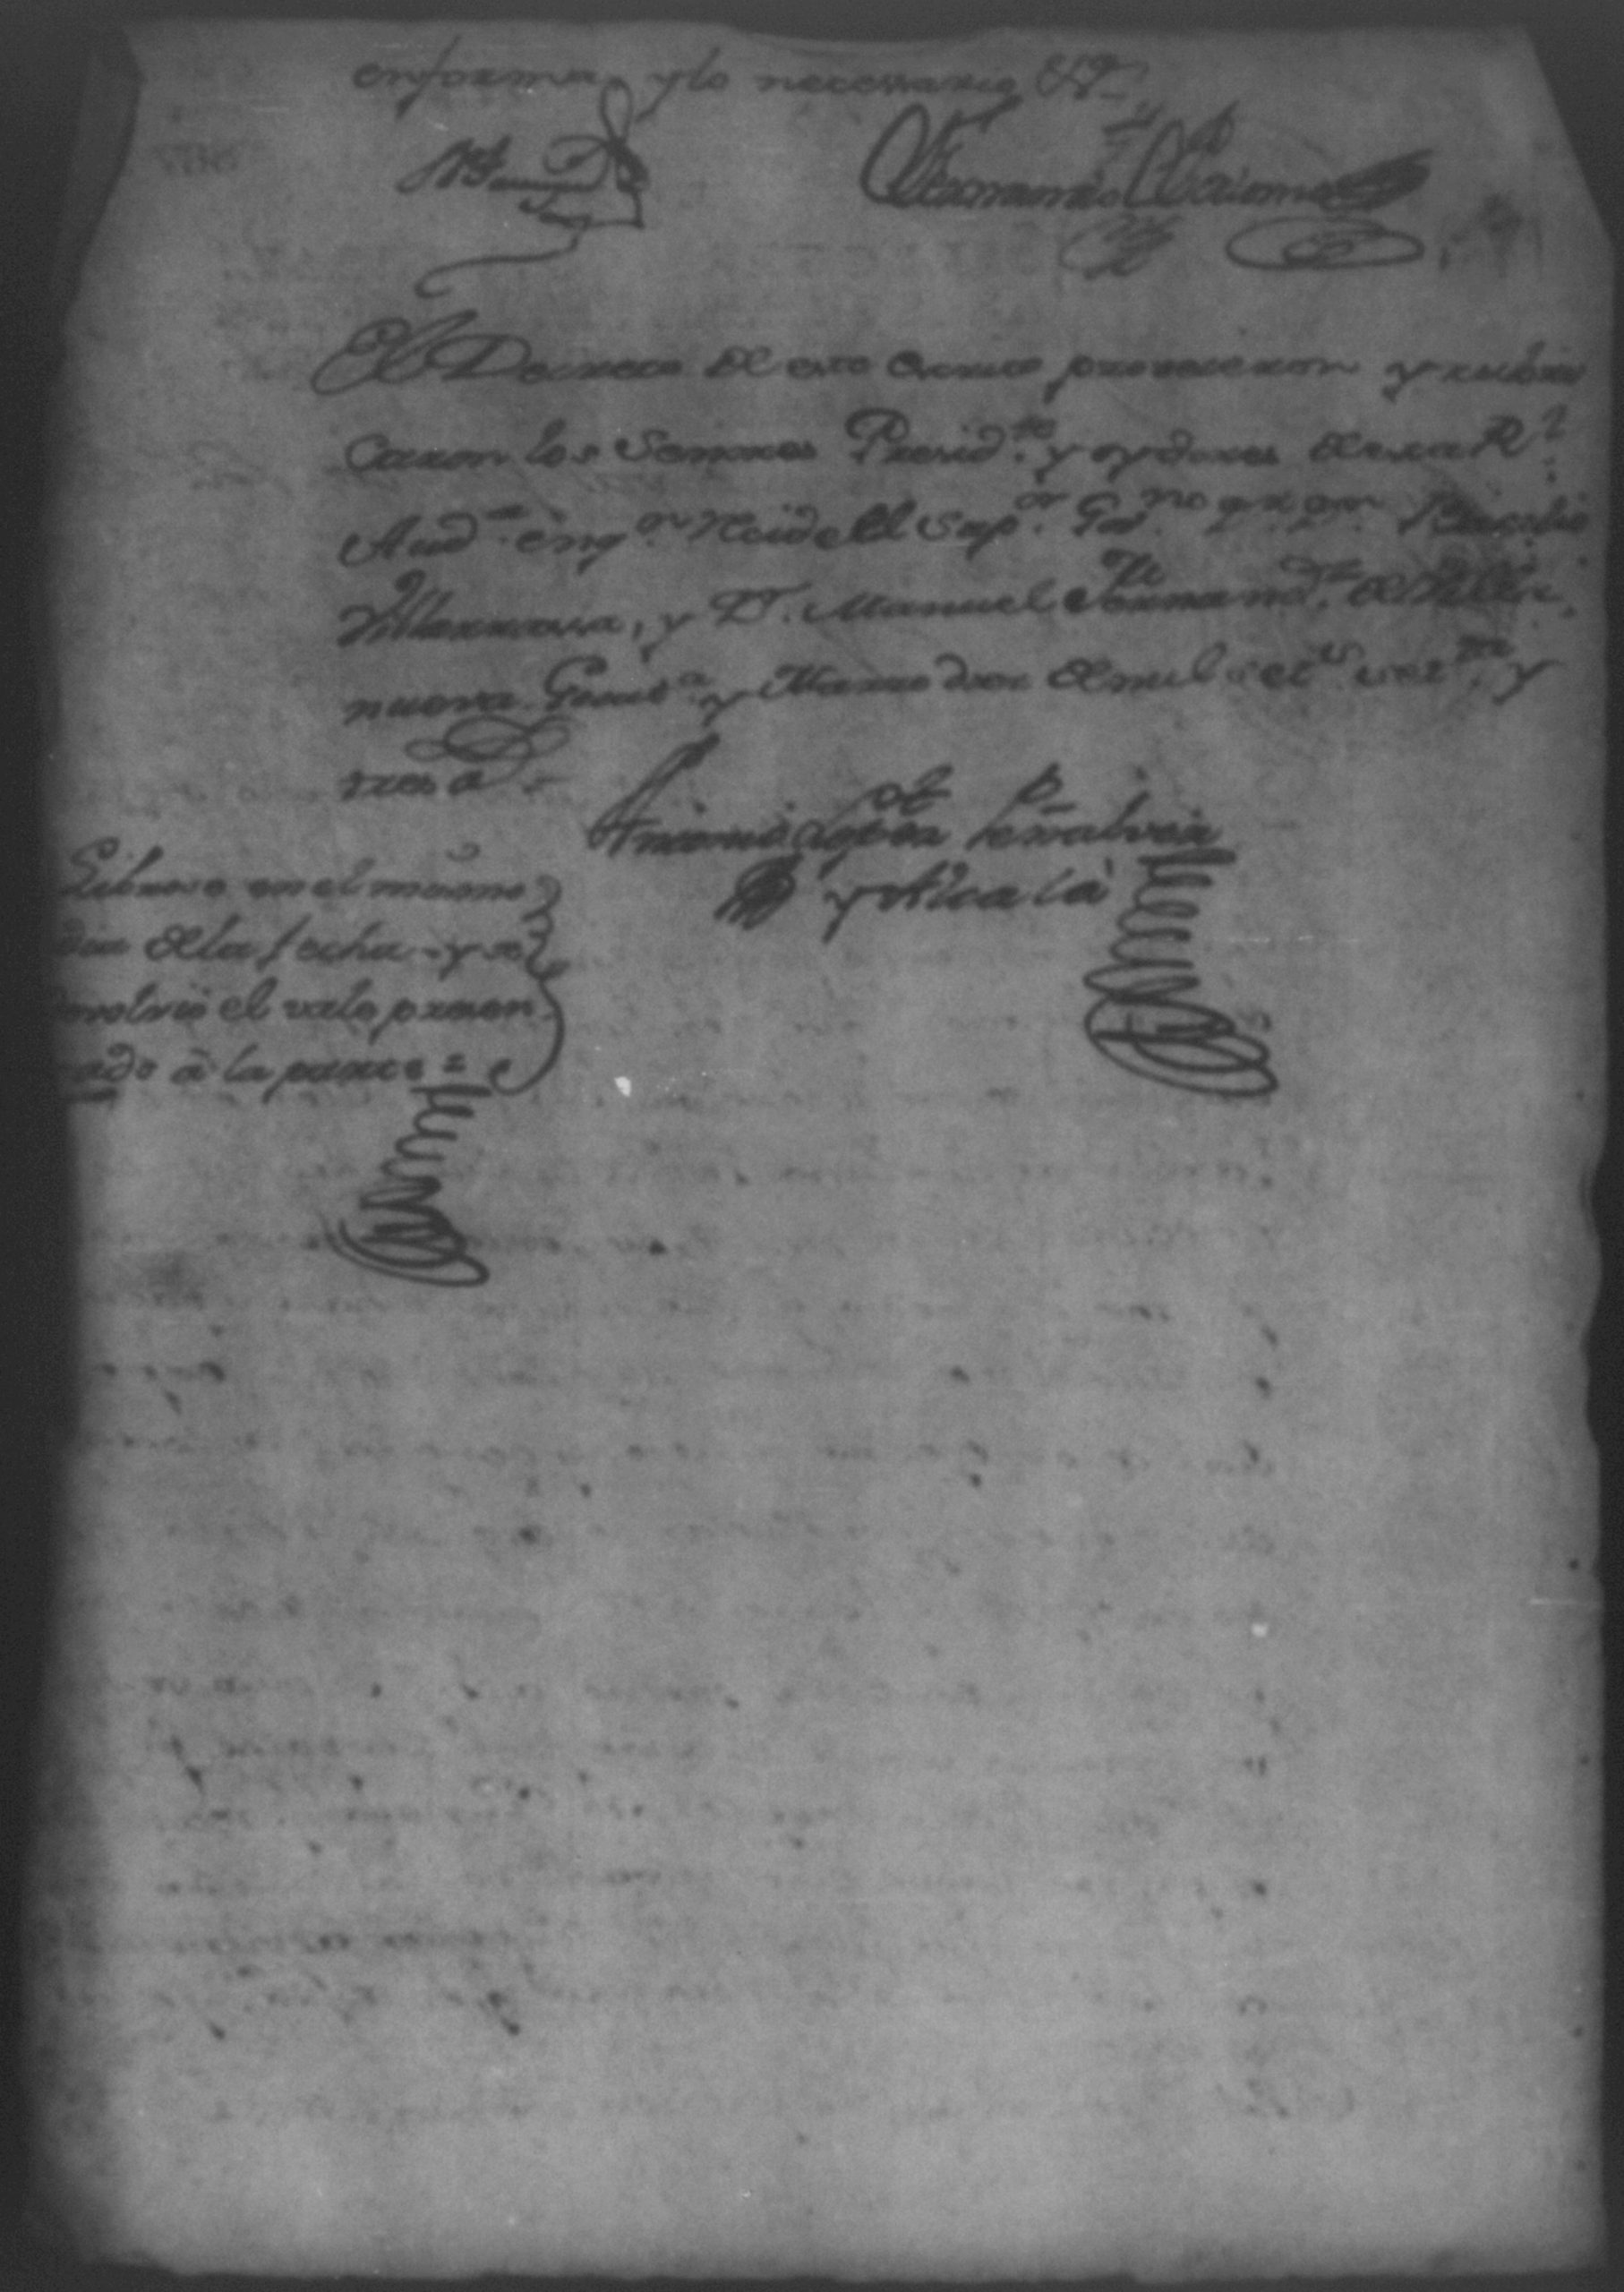 enforma, y lo necessario &ª
Fernando Palomo
El Decreto de este escrito proveieron y rubri
caron los Señores Presid.te y oydores de esta Rl.
Aud.a en q.n recide el Sup.or Gov.no q. son Basilio
Villarrasa, y D.n Manuel Fernand.z de Villa
nueva. Guat.a y Marzo dos de mil set.s set.ta y
tres a.s
Antonio Lopez Peñalver
y Alcalá
Librose en el mismo
dia de la fecha y se
devolvió el vale presen
tado à la parte =